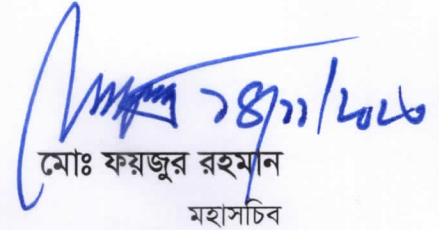 ১৪/১১/২০২৩
মোঃ ফয়জুর রহমান
মহাসচিব